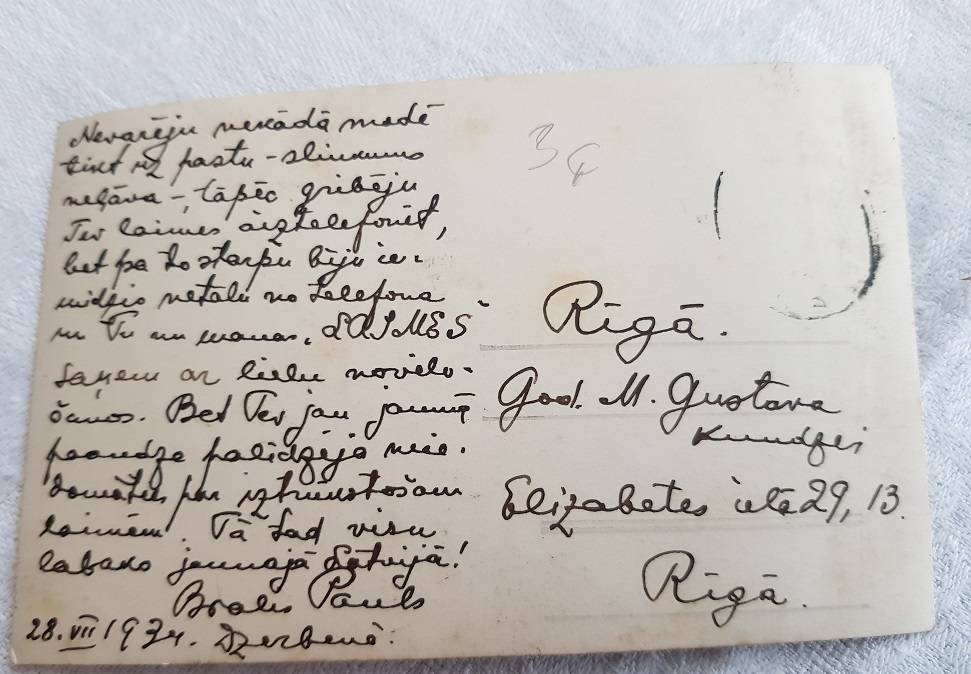 Nevarēju nekādā modē
tikt uz pastu - slinkums
neļāva -, tāpēc gribēju
Tev laimes aiztelefonēt,
bet pa to starpu biju ie-
midzis netālu no telefona
un Tu nu manas "LAIMES"
saņem ar lielu novēlo-
šanos. Bet Tev jau jaunā
paaudze palīdzēja
par iztrūkstošām
laimēm. Tā tad visu
labāko jaunajā Latvijā!
Brālis Pauls
28. VII 1934. Dzērbenē.
34
Rīgā.
God. M. Gustava
Kundzei
Elizabetes ielā 29, 13.
Rīgā.